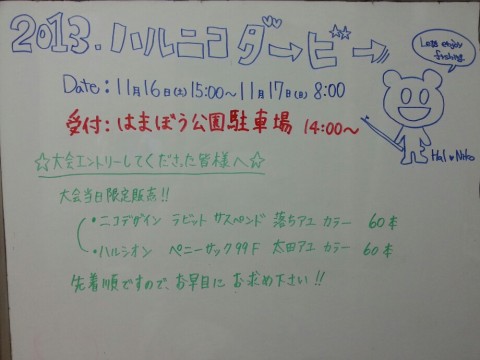 2013.ハルニコダービー
Lets enjoy
fishing
Date：11月16日(土)15:00〜11月17日(日)8:00
受付：はまぼう公園駐車場 14:00〜
Hal♥Niko
☆大会エントリーしてくださった皆様へ☆
大会当日限定販売!!
・ニコデザイン ラビット サスペンド 落ちアユ カラー 60本
・ハルシオン ペニーサック99F 太田アユ カラー 60本
先着順ですので、お早目に お求め下さい!!